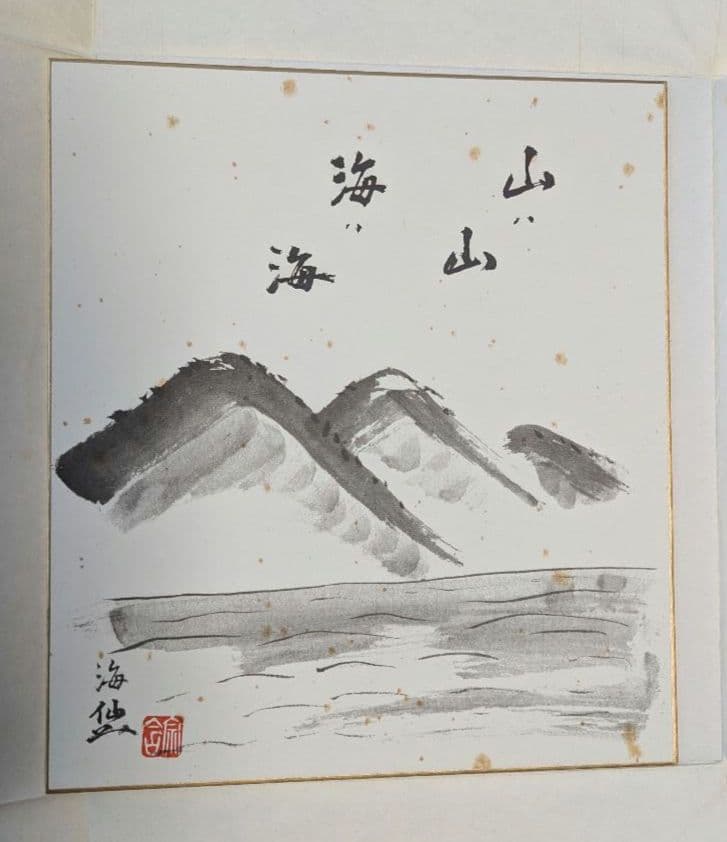 山ハ
山
海ハ
海
海仙